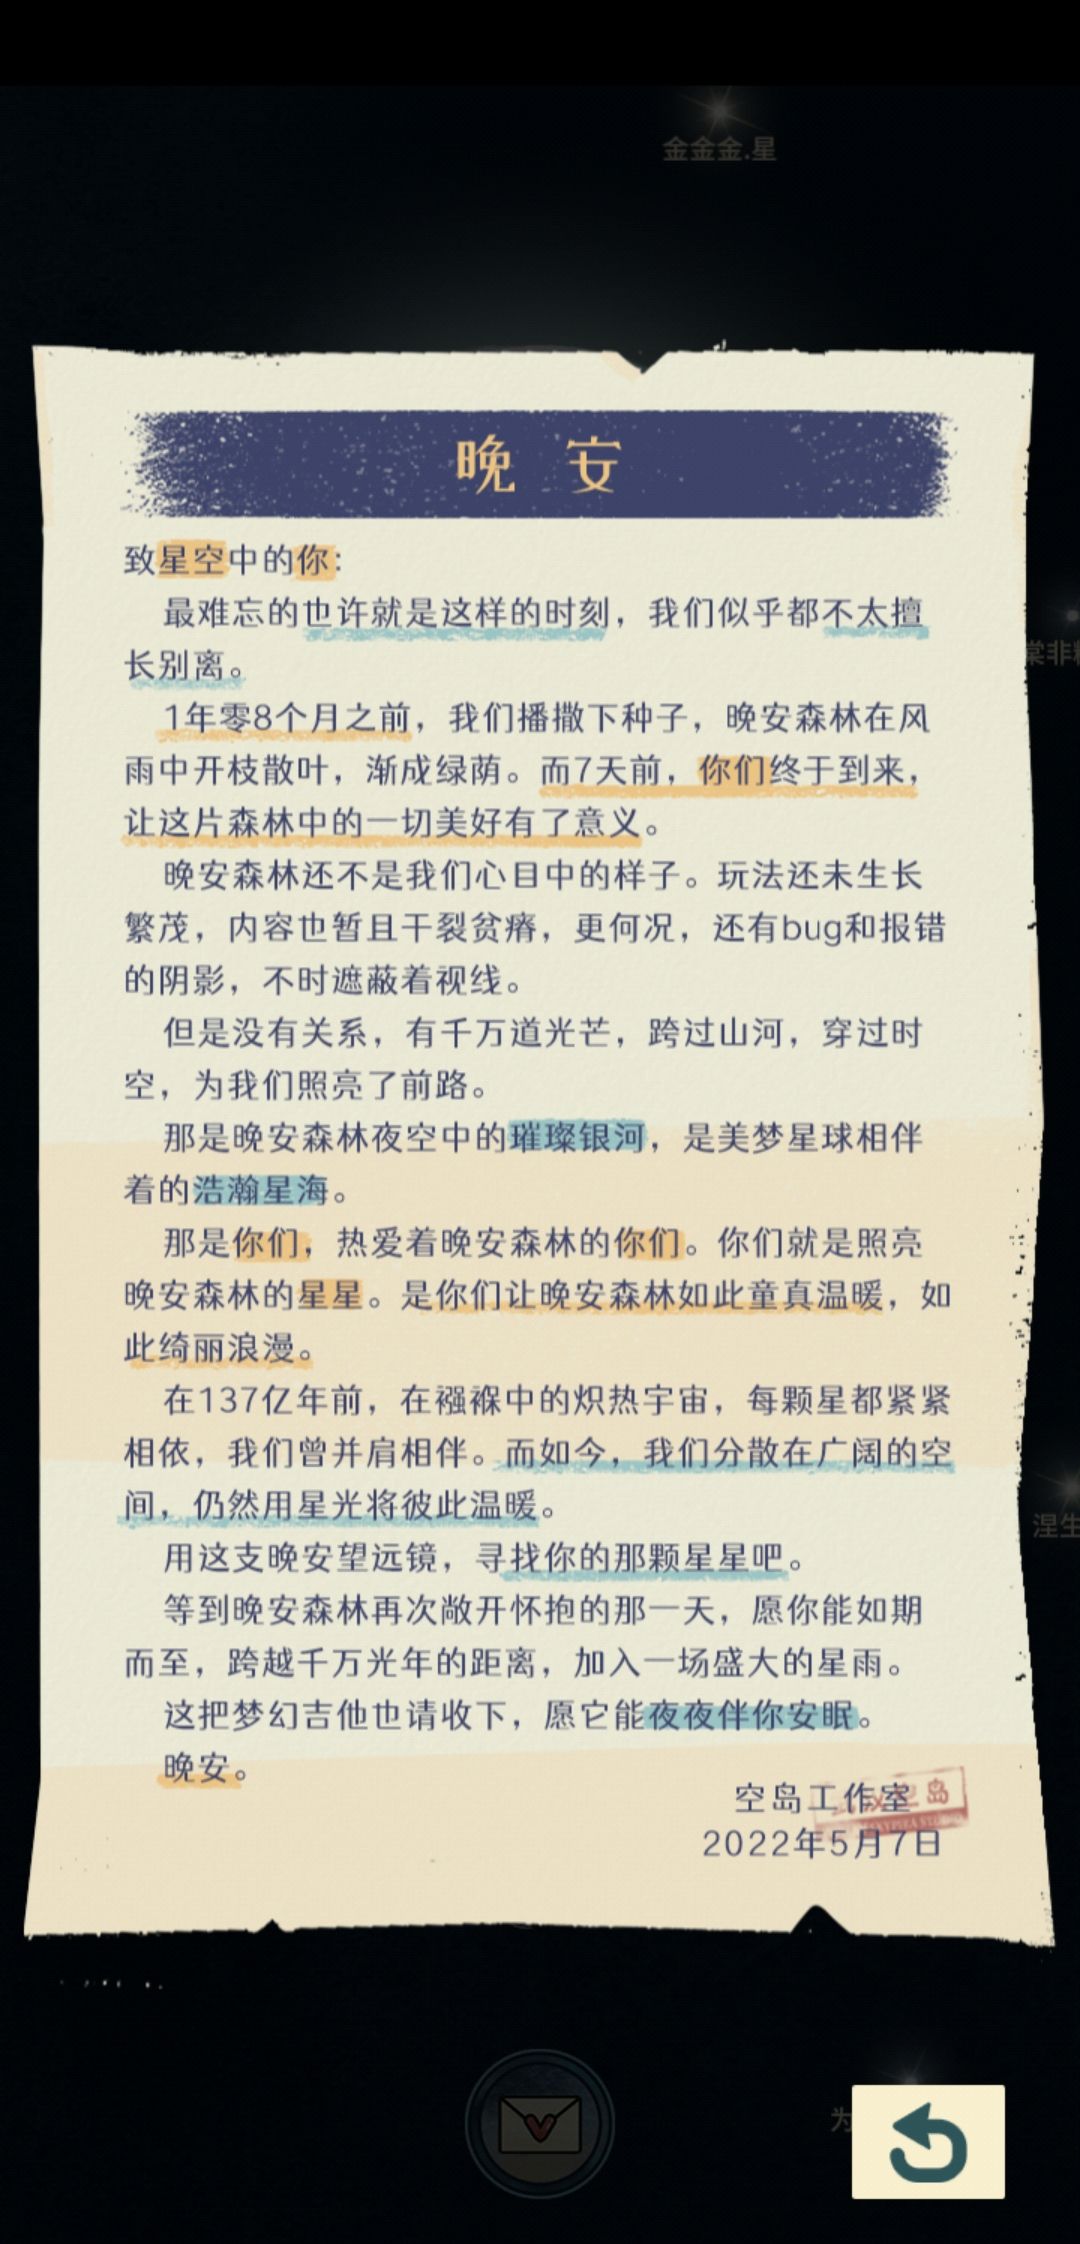 金金金.星
晚 安
致星空中的你：
最难忘的也许就是这样的时刻，我们似乎都不太擅
长别离。
1年零8个月之前，我们播撒下种子，晚安森林在风
雨中开枝散叶，渐成绿荫。而7天前，你们终于到来，
让这片森林中的一切美好有了意义。
晚安森林还不是我们心目中的样子。玩法还未生长
繁茂，内容也暂且干裂贫瘠，更何况，还有bug和报错
的阴影，不时遮蔽着视线。
但是没有关系，有千万道光芒，跨过山河，穿过时
空，为我们照亮了前路。
那是晚安森林夜空中的璀璨银河，是美梦星球相伴
着的浩瀚星海。
那是你们，热爱着晚安森林的你们。你们就是照亮
晚安森林的星星。是你们让晚安森林如此童真温暖，如
此绮丽浪漫。
在137亿年前，在襁褓中的炽热宇宙，每颗星都紧紧
相依，我们曾并肩相伴。而如今，我们分散在广阔的空
间，仍然用星光将彼此温暖。
用这支晚安望远镜，寻找你的那颗星星吧。
等到晚安森林再次敞开怀抱的那一天，愿你能如期
而至，跨越千万光年的距离，加入一场盛大的星雨。
这把梦幻吉他也请收下，愿它能夜夜伴你安眠。
晚安。
空岛工作室
2022年5月7日
涅生
为